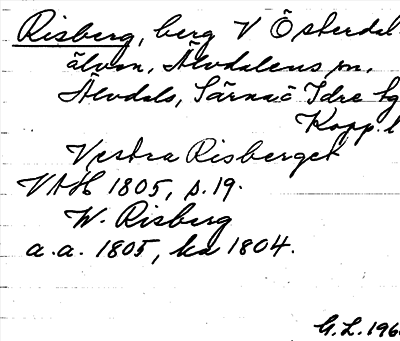 Risberg, berg V Österdal
älven, Älvdalens sn,
Älvdals, Särna o Idre tg
Kopp. l
Västra Risberget
VAH 1805, s. 19.
W. Risberg
a. a. 1805, ka 1804.
G. L. 196